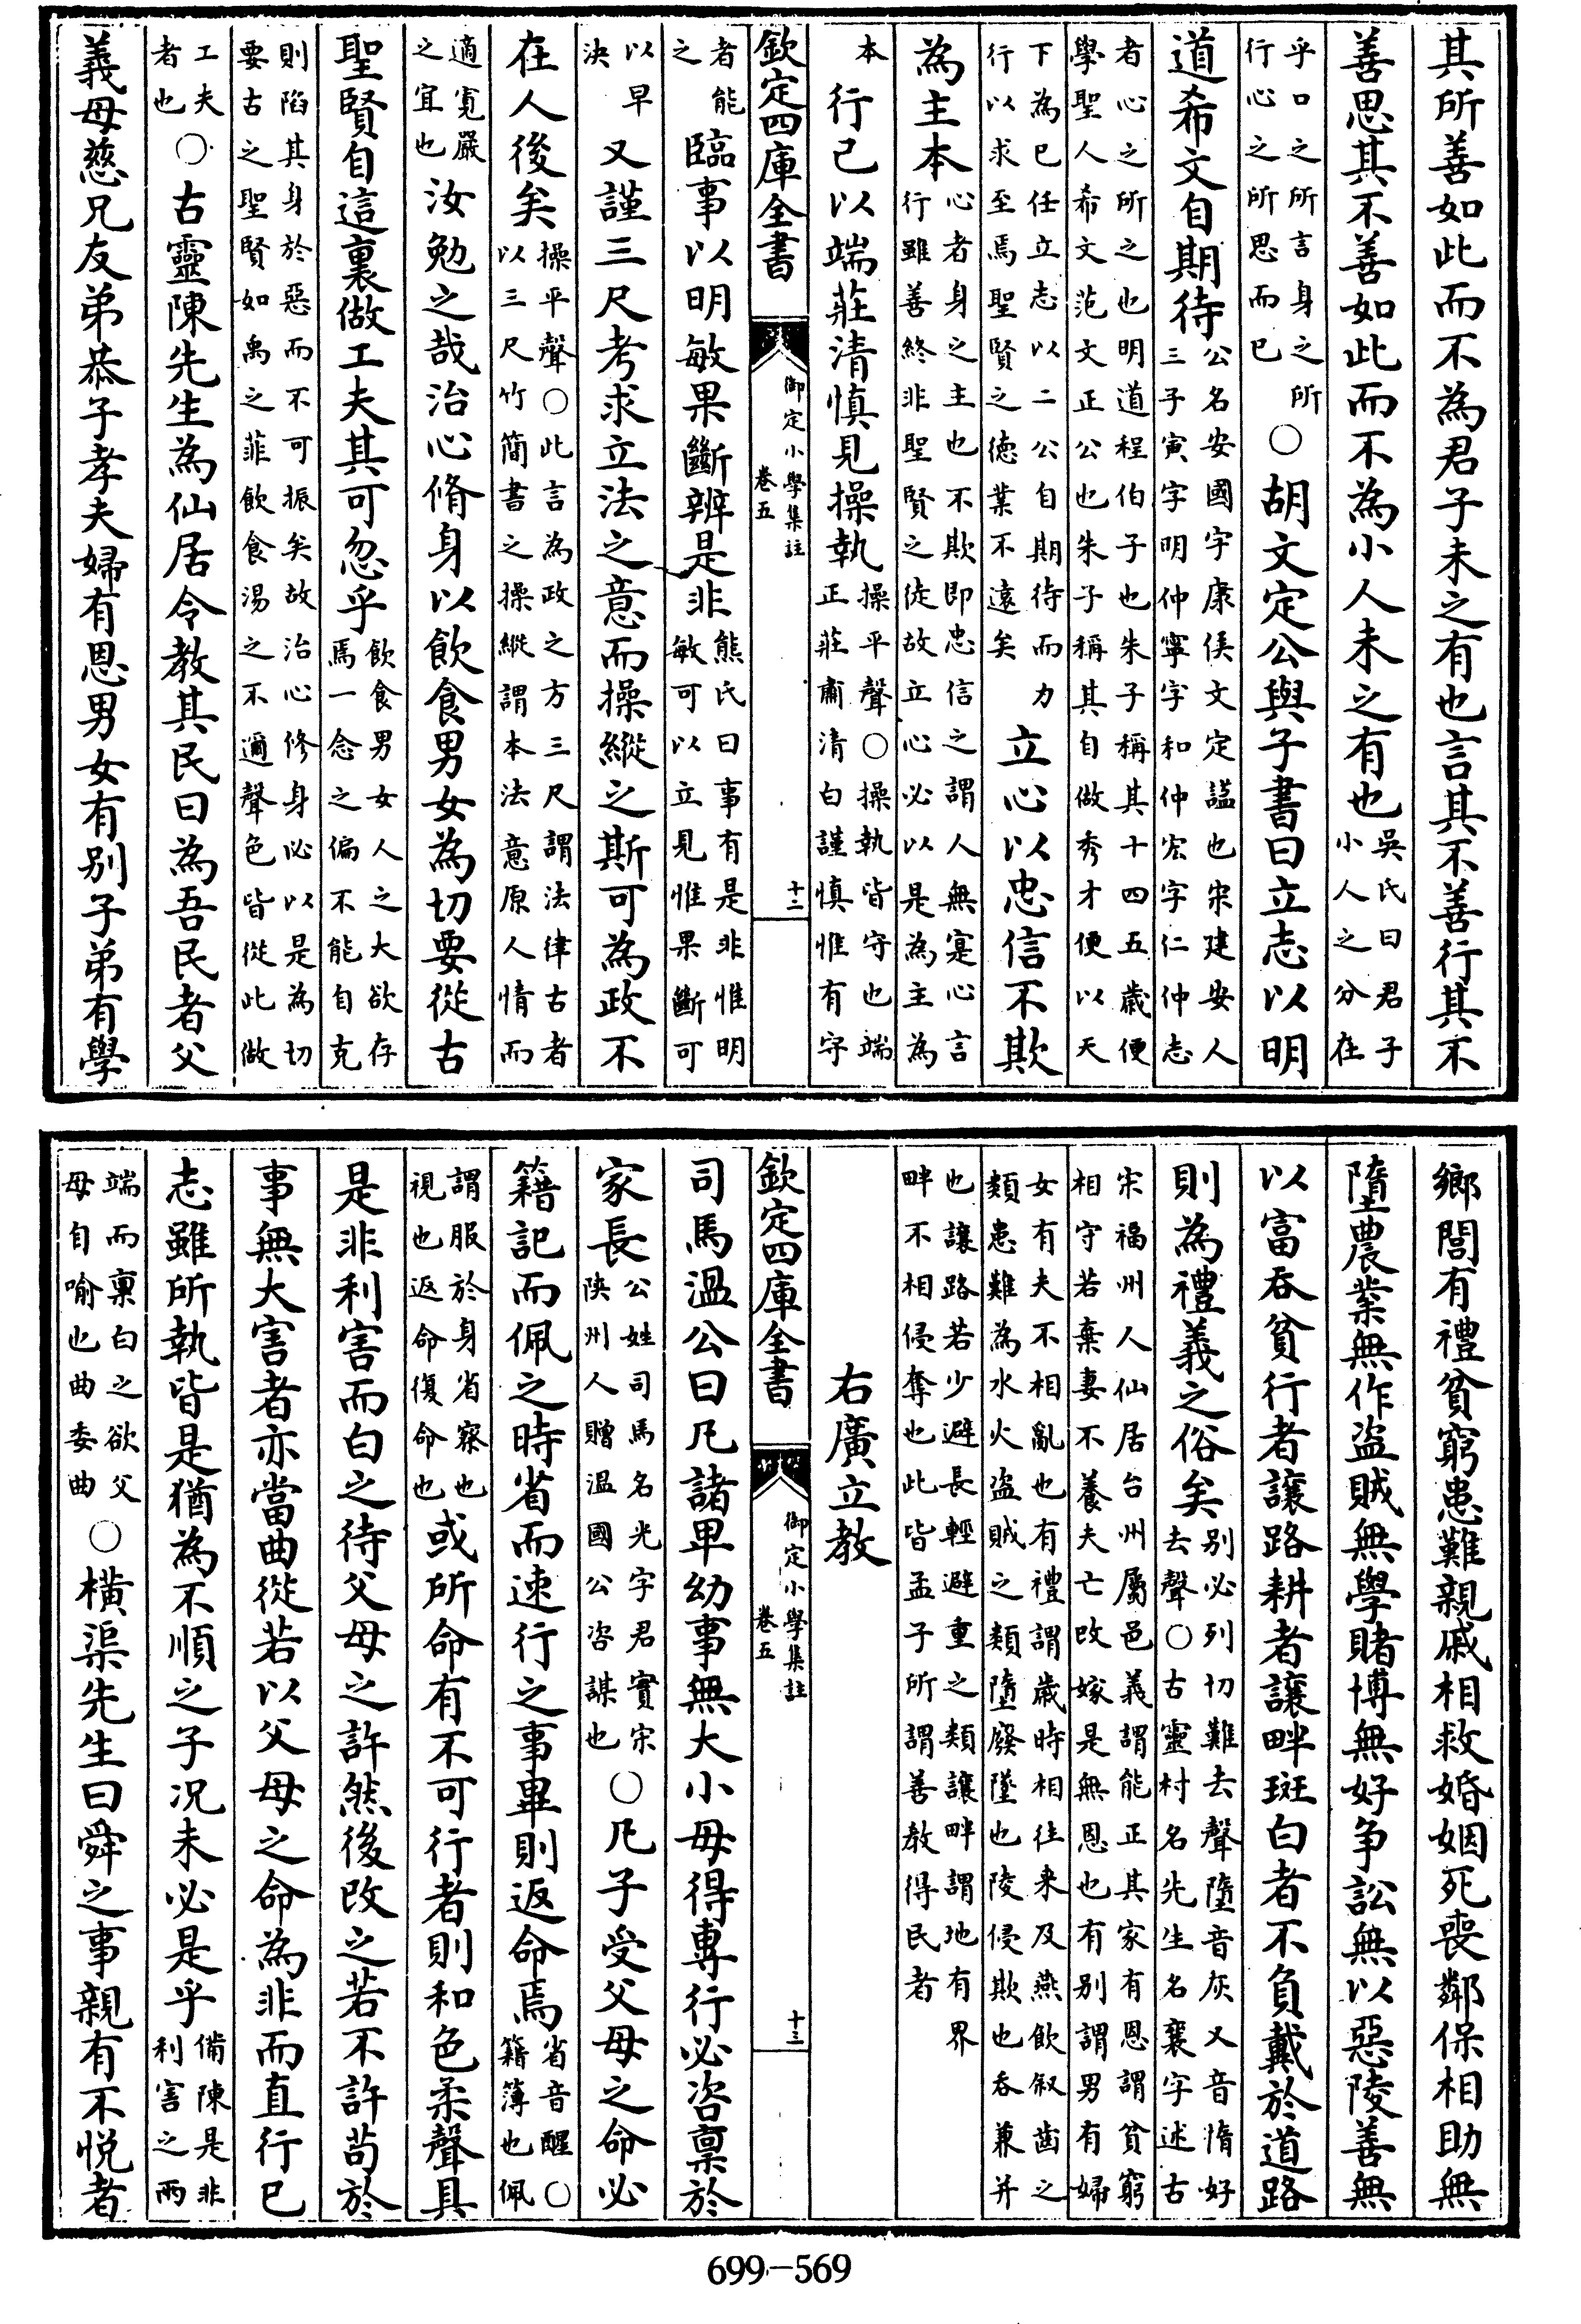 其所善如此而不為君子未之有也言其不善行其不
善思其不善如此而不為小人未之有也吳氏曰君子
小人之分在
乎口之所言身之所
行心之所思而已○胡文定公與子書曰立志以明
道希文自期待公名安國字康侯文定諡也宋建安人
三子寅字明仲寧字和仲宏字仁仲志
者心之所之也明道程伯子也朱子稱其十四五歲便
學聖人希文范文正公也朱子稱其自做秀才便以天
下為已任立志以二公自期待而力
行以求至焉聖賢之德業不遠矣立心以忠信不欺
為主本心者身之主也不欺即忠信之謂人無寔心言
行雖善終非聖賢之徒故立心必以是為主為
本行已以端莊清慎見操執操平聲○操執皆守也端
正莊肅清白謹慎惟有守
欽定四庫全書
御定小學集註
卷五
十二
者能
之臨事以明敏果斷辨是非熊氏曰事有是非惟明
敏可以立見惟果斷可
以早
決又謹三尺考求立法之意而操縱之斯可為政不
在人後矣操平聲○此言為政之方三尺謂法律古者
以三尺竹簡書之操縱謂本法意原人情而
適寬嚴
之宜也汝勉之哉治心脩身以飲食男女為切要從古
聖賢自這裏做工夫其可忽乎飲食男女人之大欲存
焉一念之偏不能自克
則陷其身於惡而不可振矣故治心修身必以是為切
要古之聖賢如禹之菲飲食湯之不邇聲色皆從此做
工夫
者也○古靈陳先生為仙居令教其民曰為吾民者父
義母慈兄友弟恭子孝夫婦有恩男女有别子弟有學
鄉閭有禮貧窮患難親戚相救婚姻死喪鄰保相助無
墮農業無作盜賊無學賭博無好爭訟無以惡陵善無
以富吞貧行者讓路耕者讓畔斑白者不負戴於道路
則為禮義之俗矣别必列切難去聲墮音灰又音惰好
去聲○古靈村名先生名襄字述古
宋福州人仙居台州屬邑義謂能正其家有恩謂貧窮
相守若棄妻不養夫亡改嫁是無恩也有别謂男有婦
女有夫不相亂也有禮謂歲時相往来及燕飲叙齒之
類患難為水火盜賊之類墮廢墜也陵侵欺也吞兼并
也讓路若少避長輕避重之類讓畔謂地有界
畔不相侵奪也此皆孟子所謂善教得民者
右廣立教
欽定四庫全書
御定小學集註
卷五
十三
司馬溫公曰凡諸卑幼事無大小毋得專行必咨稟於
家長公姓司馬名光字君實宋
陝州人贈溫國公咨謀也○凡子受父母之命必
籍記而佩之時省而速行之事畢則返命焉省音醒○
籍簿也佩
謂服於身省察也
視也返命復命也或所命有不可行者則和色柔聲具
是非利害而白之待父母之許然後改之若不許苟於
事無大害者亦當曲從若以父母之命為非而直行已
志雖所執皆是猶為不順之子况未必是乎備陳是非
利害之兩
端而稟白之欲父
母自喻也曲委曲○橫渠先生曰舜之事親有不悅者
699-569